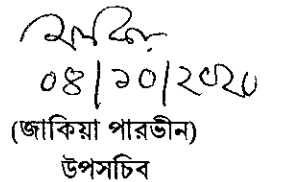 ০৪/১০/২০২০
(জাকিয়া পারভীন)
উপসচিব